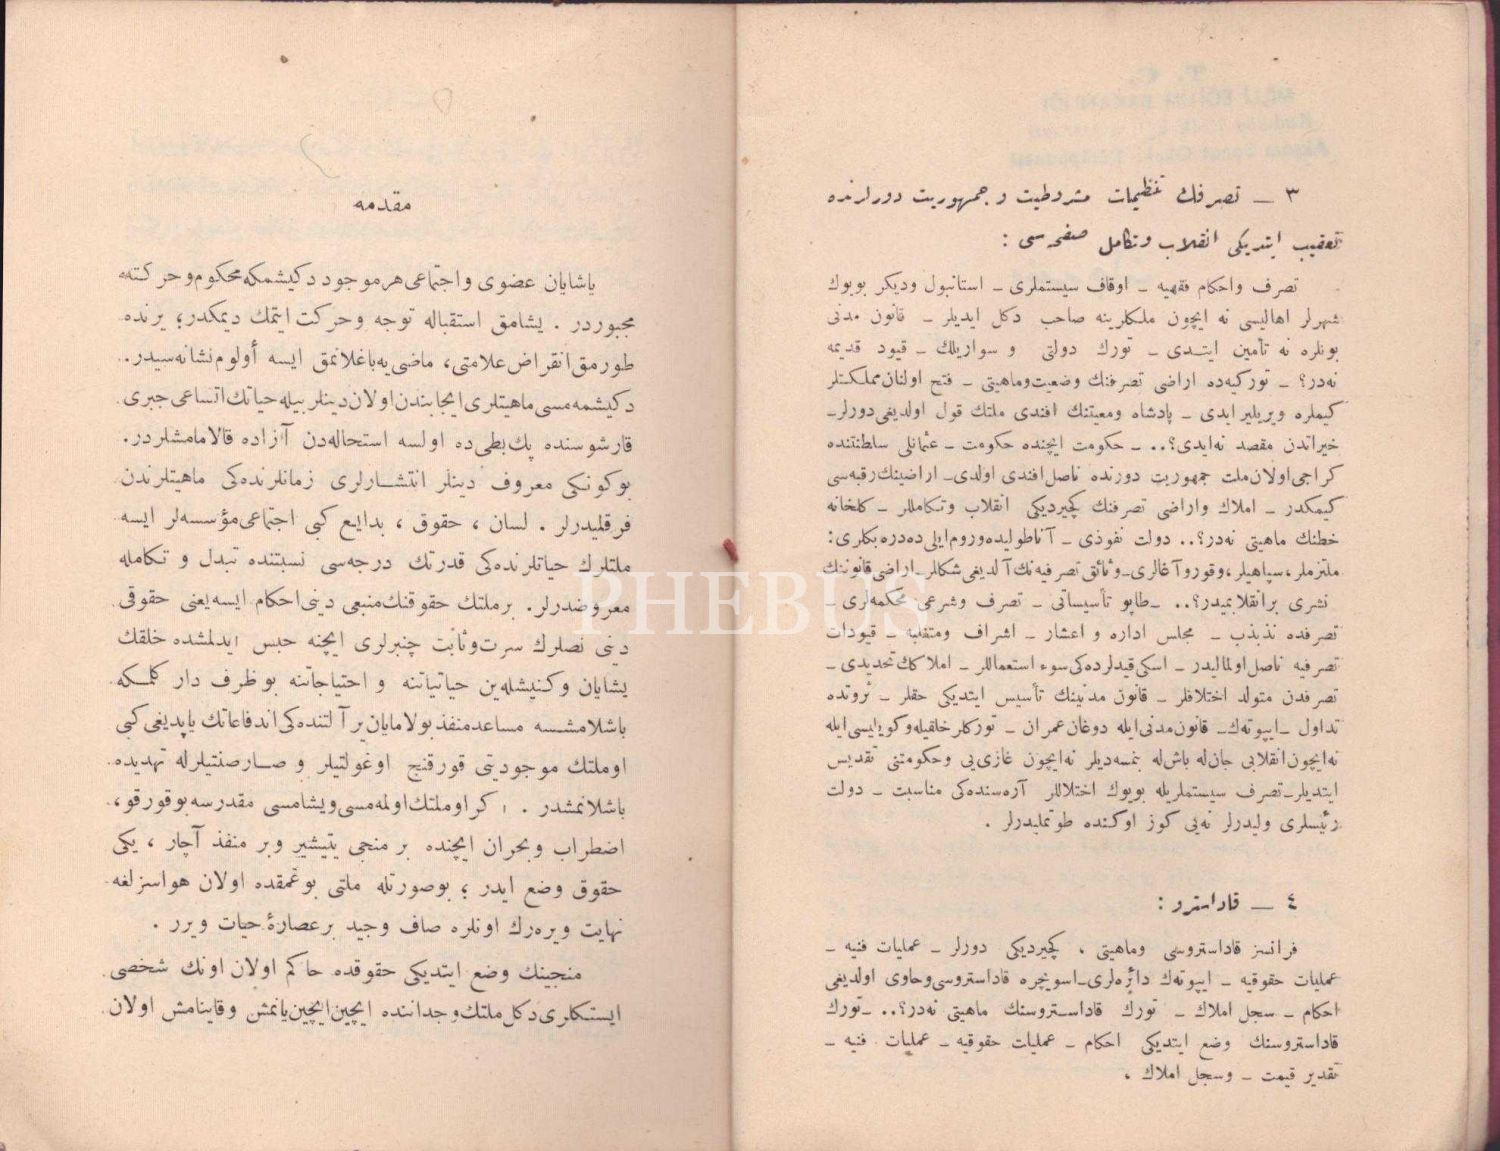 ٣ ــ تصرفك تنظيمات مشروطيت و جمهوريت دورلرنده
تعقيب ايتديكى انقلاب وتكامل صفحه‌سى :
تصرف واحكام فقهيه ــ اوقاف سيستملرى ــ استانبول وديكر بويوك
شهرلر اهاليسى نه ايچون ملكلرينه صاحب دكل ايديلر ــ قانون مدنى
بونلره نه تأمين ايتدى ــ تورك دولتى و سواريلك ــ قيود قديمه
نه‌در؟ ــ توركيه‌ده اراضى تصرفنك وضعيت وماهيتى ــ فتح اولنان مملكتلر
كيملره ويريلير ايدى ــ پادشاه ومعيتنك افندى ملتك قول اولديغى دورلر ــ
خيراتدن مقصد نه‌ايدى؟.. ــ حكومت ايچنده حكومت ــ عثمانلى سلطنتنده
كراجى اولان ملت جمهوريت دورنده ناصل افندى اولدى ــ اراضينك رقبه‌سى
كيمكدر ــ املاك واراضى تصرفنك كچيرديكى انقلاب وتكامللر ــ كلخانه
خطنك ماهيتى نه‌در؟.. دولت نفوذى ــ آناطوليده وروم ايلى ده‌دره‌بكلرى :
ملتزملر، سپاهيلر، وقوروآغالرى ــ وثائق تصرفيه‌نك آلديغى شكللر ــ اراضى قانوننك
نشرى برانقلابميدر؟.. ــ طاپو تأسيساتى ــ تصرف وشرعى محكمه‌لرى ــ
تصرفده تذبذب ــ مجلس اداره و اعشار ــ اشراف ومتغلبه ــ قيودات
تصرفيه ناصل اولماليدر ــ اسكى قيدلرده‌كى سوء استعماللر ــ املاكك تحديدى ــ
تصرفدن متولد اختلافلر ــ قانون مدنينك تأسيس ايتديكى حقلر ــ ثروتده
تداول ــ ايپوتەك ــ قانون مدنى ايله دوغان عمران ــ توركلر خلقيله وكويليسى ايله
نه ايچون انقلابى جان‌له باش‌له بنمسه‌ديلر نه‌ايچون غازى‌يى وحكومتنى تقديس
ايتديلر ــ تصرف سيستملريله بويوك اختلاللر آره‌سنده‌كى مناسبت ــ دولت
رئيسلرى وليدرلر نه‌يى كوز اوكنده طوتمليدرلر .
٤ ــ قاداسترو :
فرانسز قاداستروسى وماهيتى ، كچيرديكى دورلر ــ عمليات فنيه ــ
عمليات حقوقيه ــ ايپوتەك دائره‌لرى ــ اسويچره قاداستروسى وحاوى اولديغى
احكام ــ سجل املاك ــ تورك قاداستروسنك ماهيتى نه‌در؟.. ــ تورك
قاداستروسنك وضع ايتديكى احكام ــ عمليات حقوقيه ــ عمليات فنيه ــ
تقدير قيمت ــ وسجل املاك .
مقدمه
ياشايان عضوى و اجتماعى هرموجود دكيشمكه محكوم و حركته
مجبوردر . يشامق استقباله توجه وحركت ايتمك ديمكدر؛ يرنده
طورمق انقراض علامتى، ماضى‌يه باغلانمق ايسه أولوم نشانه‌سيدر.
دكيشمه‌مسى ماهيتلرى ايجابندن اولان دينلر بيله حياتك اتساعى جبرى
قارشوسنده پك بطى ده اولسه استحاله‌دن آزاده قالامامشلردر.
بوكونكى معروف دينلر انتشارلرى زمانلرنده‌كى ماهيتلرندن
فرقليدرلر . لسان ، حقوق ، بدايع كبى اجتماعى مؤسسه‌لر ايسه
ملتلرك حياتلرنده‌كى قدرتك درجه‌سى نسبتنده تبدل و تكامله
معروضدرلر . برملتك حقوقنك منبعى دينى احكام ايسه يعنى حقوقى
دينى نصلرك سرت وثابت چنبرلرى ايچنه حبس ايدلمشده خلقك
يشايان وكنيشله‌ين حياتياتنه و احتياجاتنه بوظرف دار كلمكه
باشلامشسه مساعدمنفذ بولامايان يرآلتنده‌كى اندفاعاتك ياپديغى كبى
اوملتك موجوديتى قورقنج اوغولتيلر و صارصنتيلرله تهديده
باشلانمشدر . اكر اوملتك اولمه‌مسى ويشامسى مقدرسه بوقورقو،
اضطراب وبحران ايچنده بر منجى يتيشير وبر منفذ آچار ، يكى
حقوق وضع ايدر ؛ بوصورتله ملتى بوغمقده اولان هواسزلغه
نهايت ويره‌رك اونلره صاف وجيد برعصارۀ حيات ويرر .
منجينك وضع ايتديكى حقوقده حاكم اولان اونك شخصى
ايستكلرى دكل ملتك وجداننده ايچين ايچين يانمش وقاينامش اولان
PHEBUS